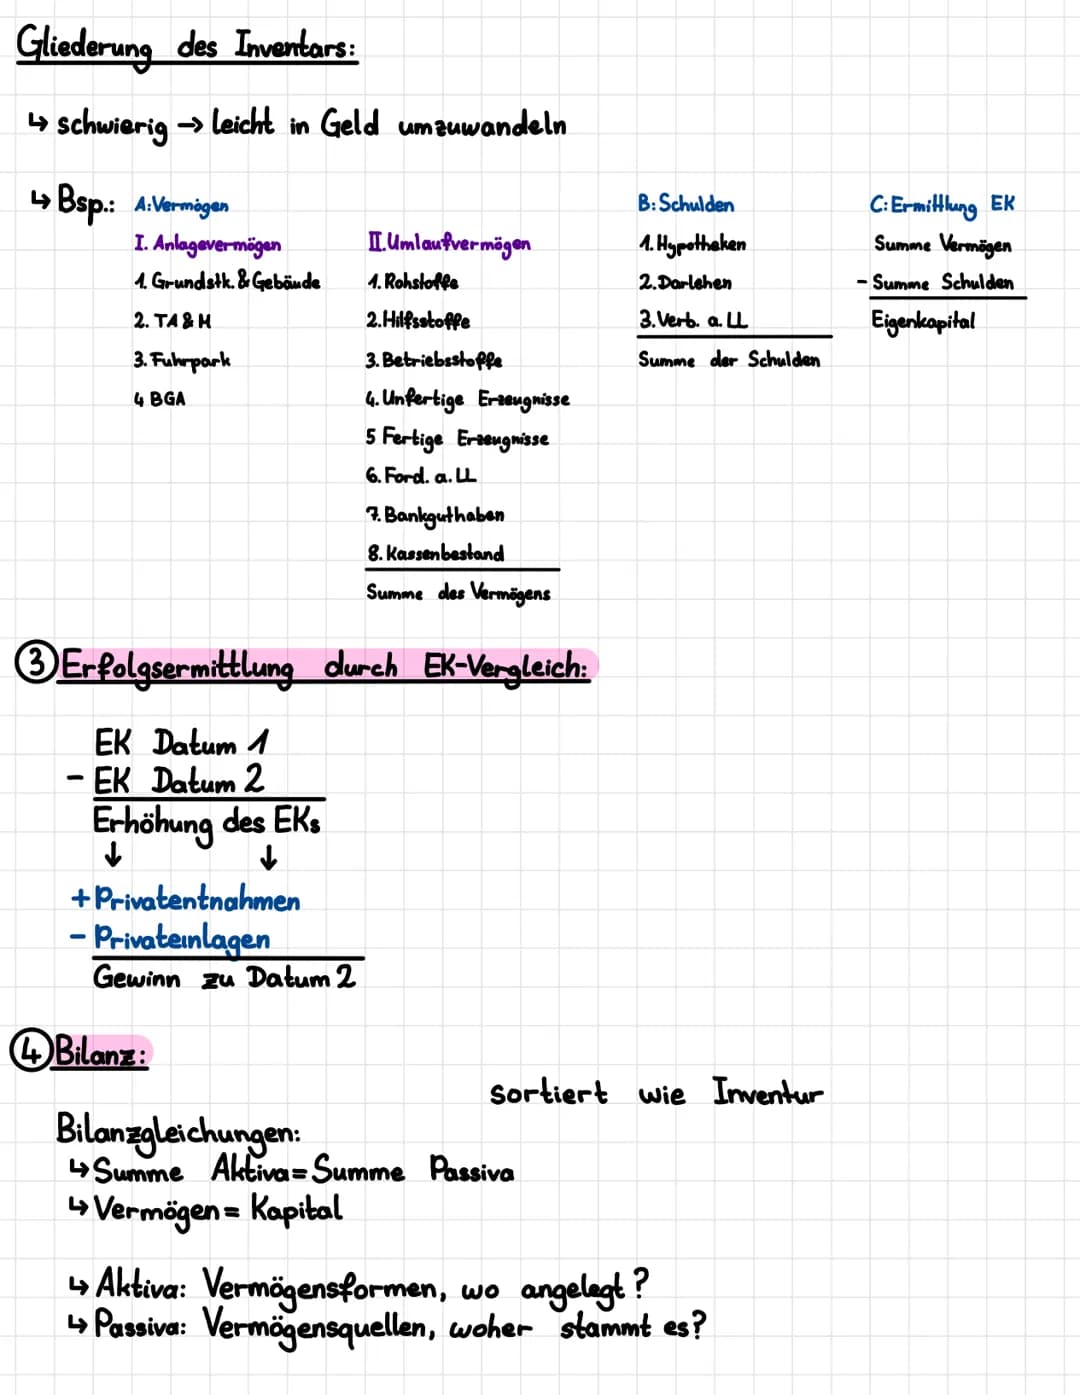 Gliederung des Inventars:
↳ schwierig → leicht in Geld umzuwandeln
↳ Bsp.: A: Vermögen
I. Anlagevermögen
1. Grundstk. & Gebäude
2. TA & M
3. Fuhrpark
4 BGA
II. Umlaufvermögen
1. Rohstoffe
2. Hilfsstoffe
3. Betriebsstoffe
4. Unfertige Erzeugnisse
5 Fertige Erzeugnisse
6. Ford. a. LL
7. Bankguthaben
8. Kassenbestand
Summe des Vermögens
B: Schulden
1. Hypotheken
2. Darlehen
3. Verb. a. LL
Summe der Schulden
C: Ermittlung EK
Summe Vermögen
- Summe Schulden
Eigenkapital
③ Erfolgsermittlung durch EK-Vergleich:
EK Datum 1
- EK Datum 2
Erhöhung des EKs
↓ ↓
+ Privatentnahmen
- Privateinlagen
Gewinn zu Datum 2
④ Bilanz:
sortiert wie Inventur
Bilanzgleichungen:
↳ Summe Aktiva = Summe Passiva
↳ Vermögen = Kapital
↳ Aktiva: Vermögensformen, wo angelegt?
↳ Passiva: Vermögensquellen, woher stammt es?